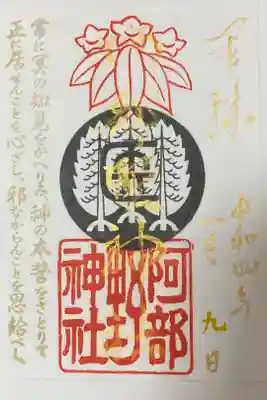 奉拝
令和四年
九日
阿部野神社
常に冥の知見をかへりみ、神の本誓をさとりて
正に居せんことを心ざし、邪なからんことを思給べし